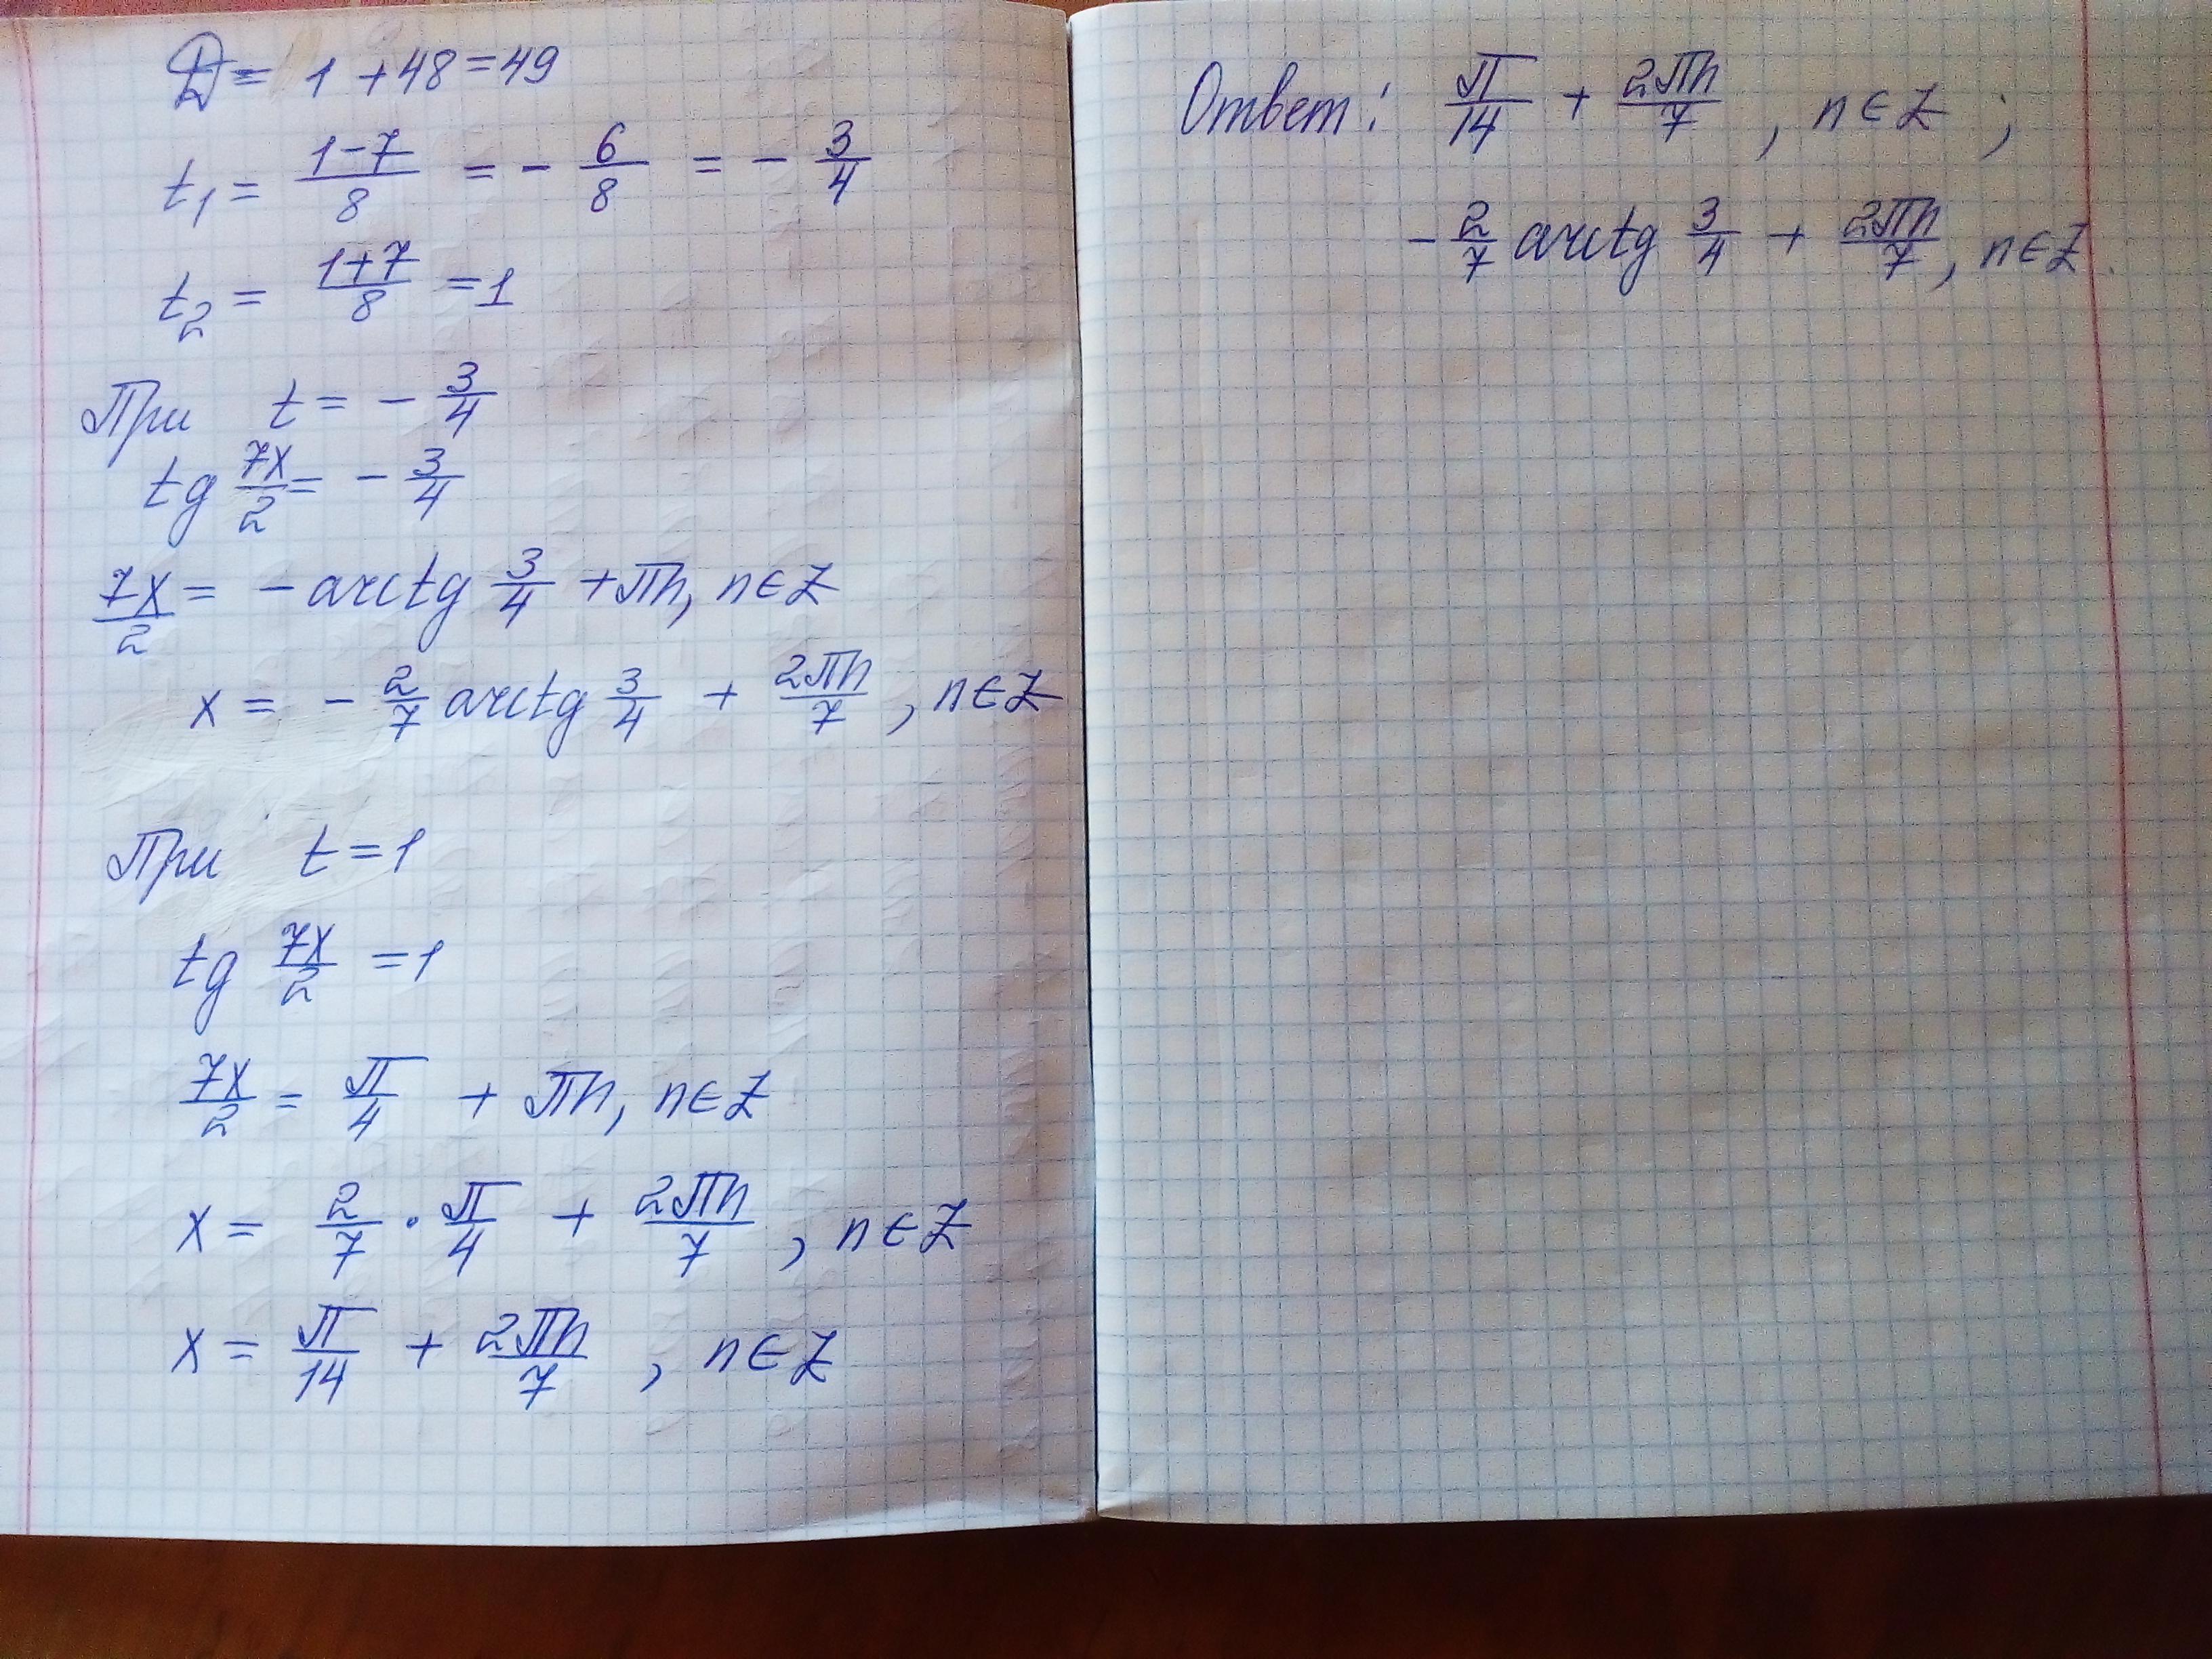 D = 1 + 48 = 49
t₁ = (1-7)/8 = - 6/8 = - 3/4
t₂ = (1+7)/8 = 1
При t = - 3/4
tg 7x/2 = - 3/4
7x/2 = - arctg 3/4 + πn, n∈Z
x = - 2/7 arctg 3/4 + 2πn/7, n∈Z
При t = 1
tg 7x/2 = 1
7x/2 = π/4 + πn, n∈Z
x = 2/7 · π/4 + 2πn/7, n∈Z
x = π/14 + 2πn/7, n∈Z
Ответ: π/14 + 2πn/7, n∈Z;
- 2/7 arctg 3/4 + 2πn/7, n∈Z.